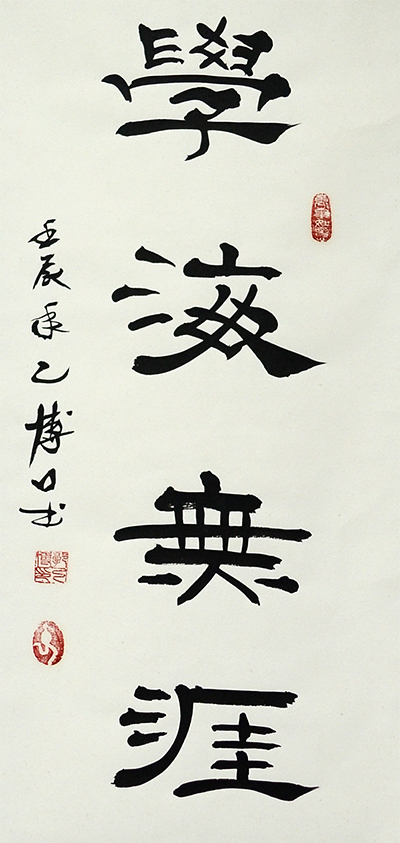 學海無涯
壬辰年乙博